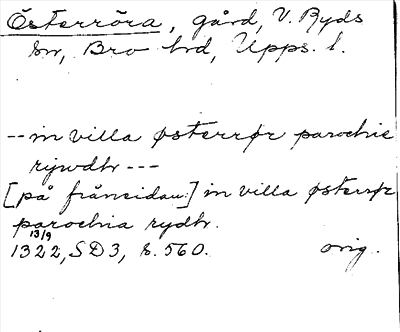 Österröra, gård, V. Ryds
sn, Bro hd, Upps. l.
-- in villa østerrør parochie
rijwdhr ---
[på frånsidan:] in villa østerrør
parochia rydhr.
13/9
1322, SD3, s. 560. orig.